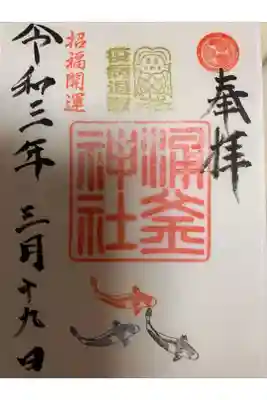 奉拝
疫病退散
涌釜
神社
招福開運
令和三年 三月十九日